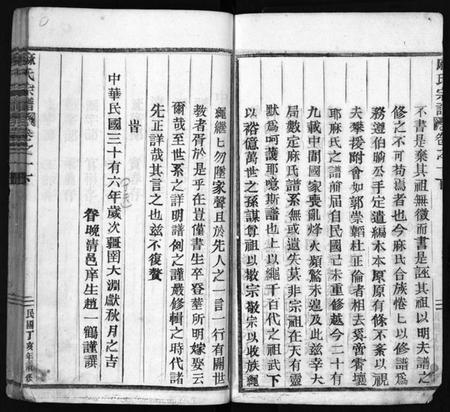 麻氏宗譜
不書是棄其祖無徵而書是誣其祖以明夫譜之
修之不可苟焉者也今麻氏合族惓惓以修譜為
務遵伯驌公手定遺編本本原原有條不紊以視
夫攀援附會如郭崇韜杜正倫者相去奚啻霄壤
耶麻氏之譜前屆自民國己未重修越今二十有
九載中間國家喪亂烽火頻驚未遑及此茲幸大
局敉定麻氏譜系無或遺失莫非宗祖在天有靈
默為呵護耶噫斯譜也上以綿千百代之祖武下
以裕億萬世之孫謀尊祖以敬宗敬宗以收族繩
繩繼繼勿墜家聲且於先人之一言一行有關世
教者胥於是乎在豈僅書生卒登華所明嫁娶云
爾哉至世系之詳明譜例之謹嚴修輯之時代諸
先正詳哉其言之也茲不復贅
旹
中華民國三十有六年歲次彊圉大淵獻秋月之吉
眷晚清邑庠生趙一鶴謹撰
麻氏宗譜
卷之一
民國丁亥年重修